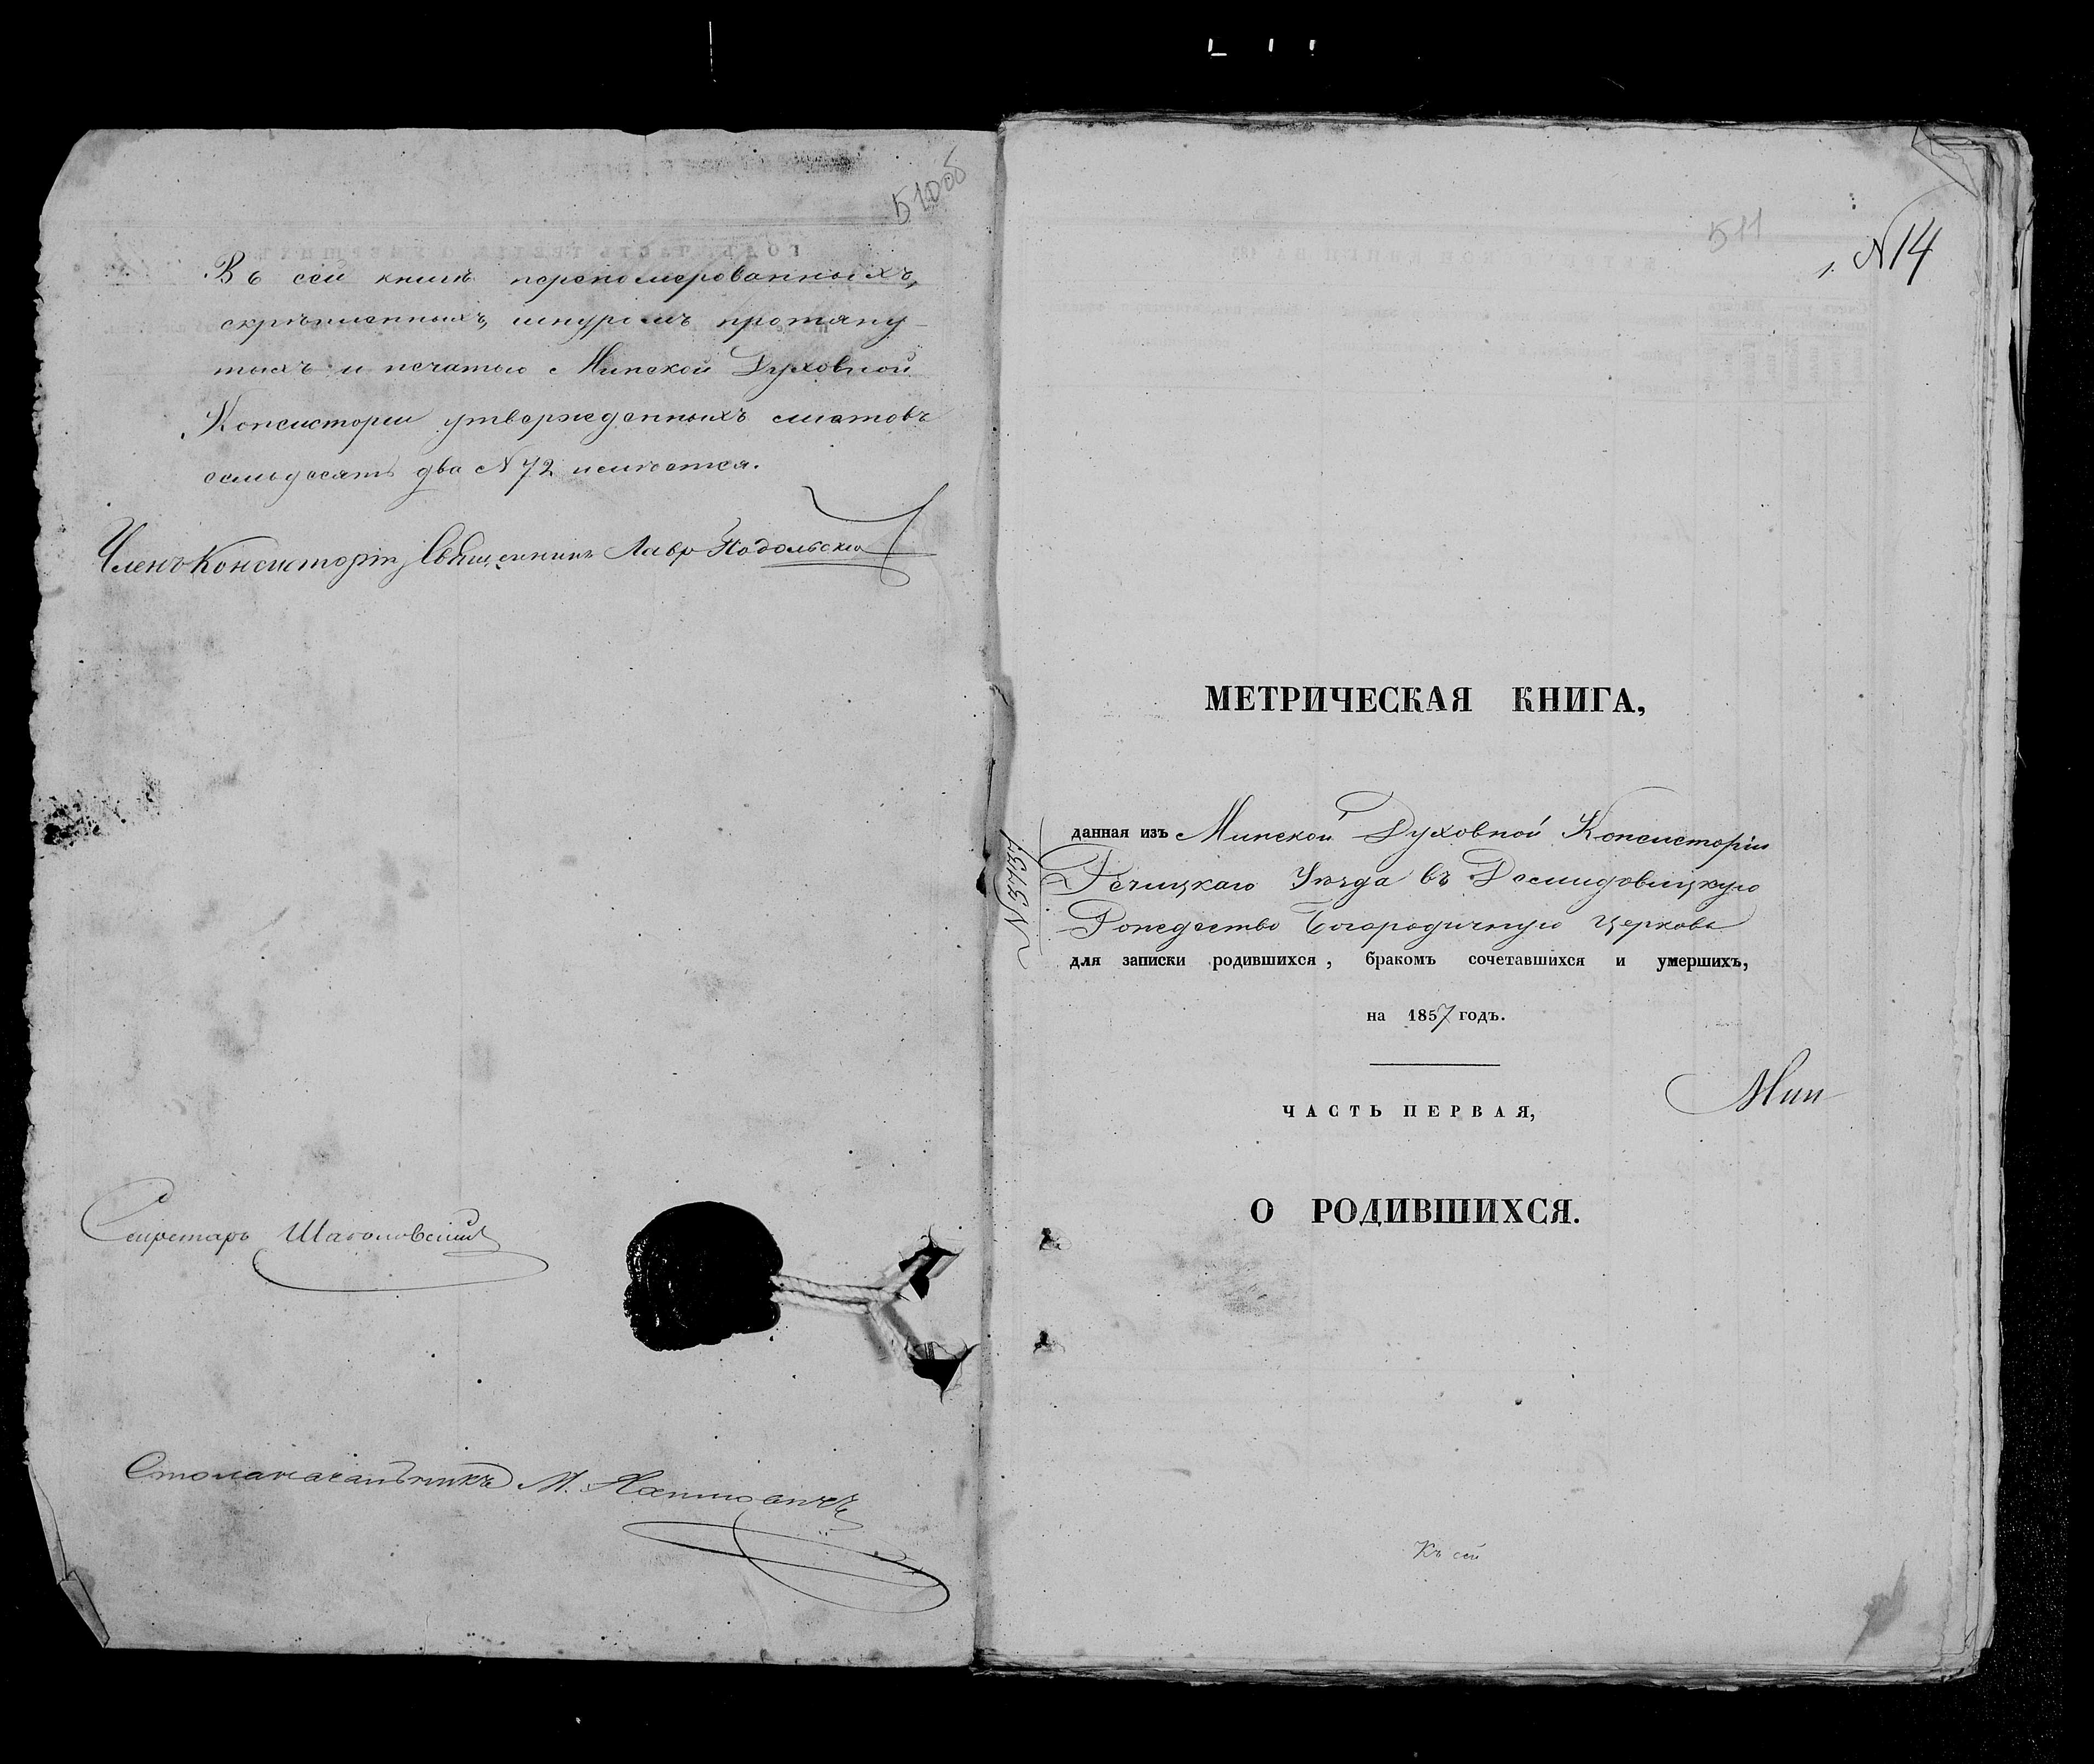 510об
Въ сей книгѣ перенумерованныхъ,
скрѣпленныхъ, шнуромъ протяну-
тыхъ и печатью Минской Духовной
Консисторіи утвержденныхъ листовъ
семьдесятъ два N 72 числится.
Членъ Консисторіи, Священникъ Лавр Подольскій
Секретарь
Столоначальникъ М.
511
1. N 14
МЕТРИЧЕСКАЯ КНИГА,
данная изъ Минской Духовной Консисторіи
Рѣчицкаго Уѣзда въ Демидовицкую
Рождество Богородичную церковь
для записки родившихся, бракомъ сочетавшихся и умершихъ,
на 1857 годъ.
ЧАСТЬ ПЕРВАЯ,
Мин
О РОДИВШИХСЯ.
Къ сей